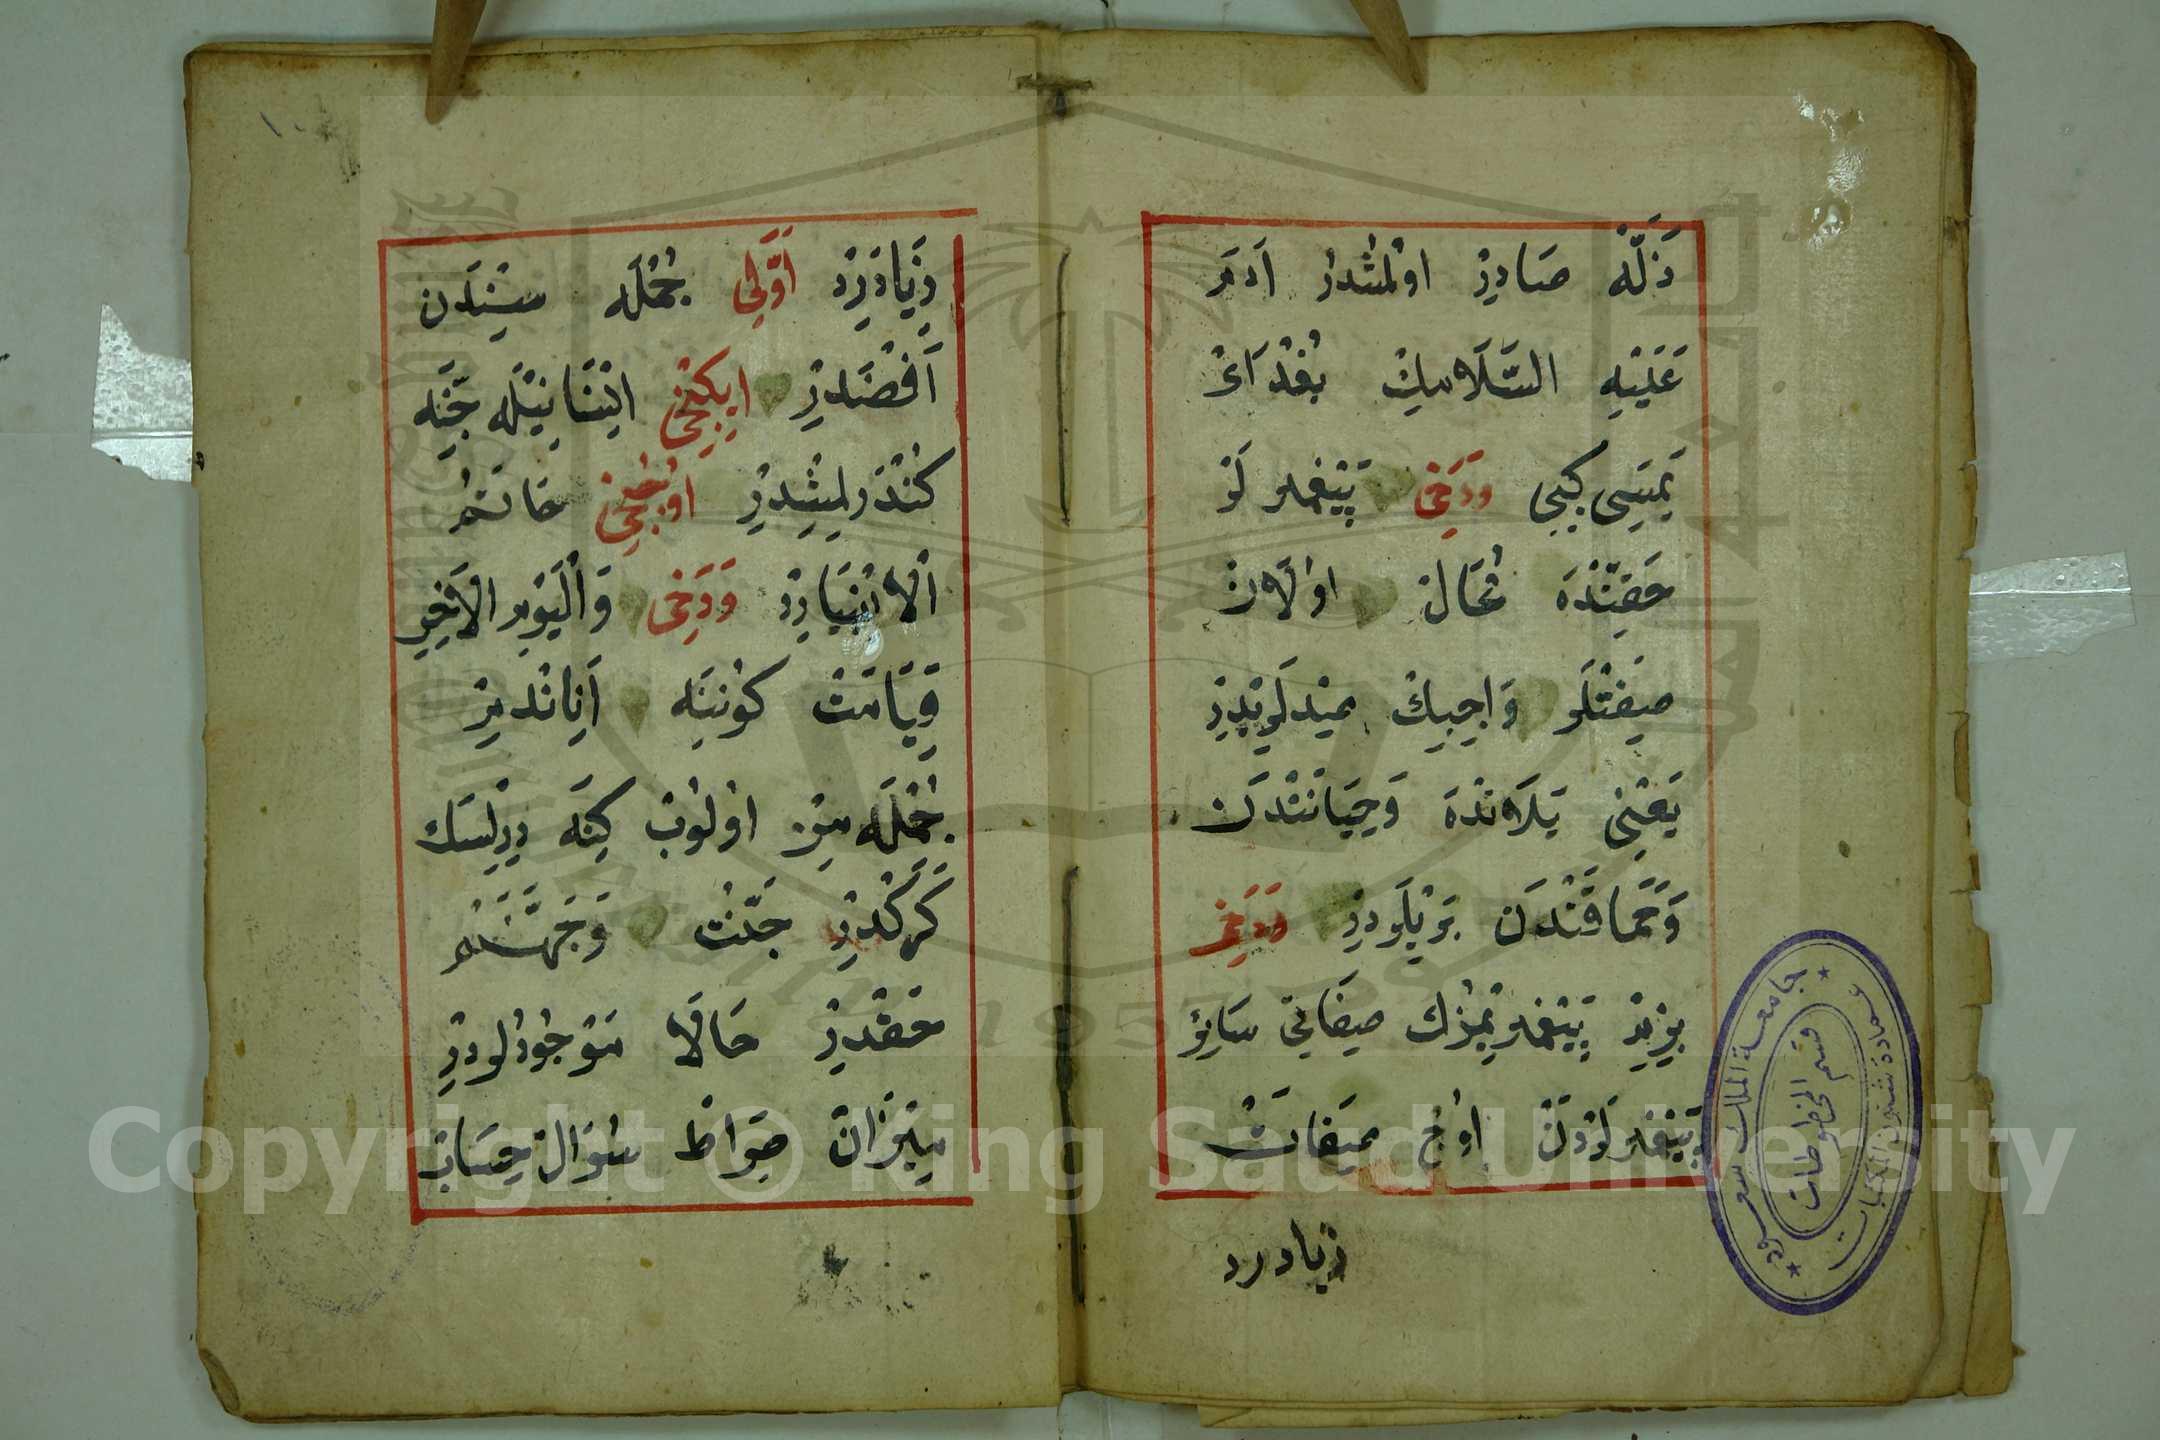 ذَلَّهْ صَادِرْ اوْلمْشْدُرْ اَدَمَ
عَلَيْهِ السَّلَامِكْ بُغْدَاىْ
يَمَسِى كِبِى وَدَخِى پَيْغَمْبَرلَرْ
حَقِنْدَه مُحَالْ اوْلَانْ
صِفَتْلَرْ وَاجِبِكْ ضِدلَرِيْدِرْ
يَعْنِى يَلَانْدَه وَخِيَانَتْدَنْ
وَحَمَاقَتْدَنْ بَرِيْلَردِرْ وَدَخِى
بِزِيمْ پَيْغَمْبَرِيْمِزْكْ صِفَاتِى سَائِرْ
پَيْغَمْبَرلَرْدَنْ اوُچْ صِفَاتْ
زيادەدر
زِيَادَەدِرْ اَوَّلِى جُمْلَه سِنْدَنْ
اَفْضَلدِرْ اِيكِنْجِى اِنْسَانِيْلَه جِنَّه
كُنْدَرلمِشْدِرْ اوُچُنْجِى خَاتَمُ
اْلاَنْبِيَادِرْ وَدَخِى وَاْليَوْمِ الْاَخِرِ
قِيَامَتْ كُونِنَه اِنَانْدِمْ
جُمْلَه مِزْ اوْلُوبْ كِنَه دِرِلْسَك
كَرَكْدِرْ جَنَّتْ وَجَهَنَّمْ
حَقْدِرْ حَالَا مَوْجُودْلَردِرْ
مِيْزَانْ صِرَاطْ سُوَالْ حِسَابْ
جامعة الملك سعود
عمادة شئون المكتبات
قسم المخطوطات
1957
Copyright © King Saud University